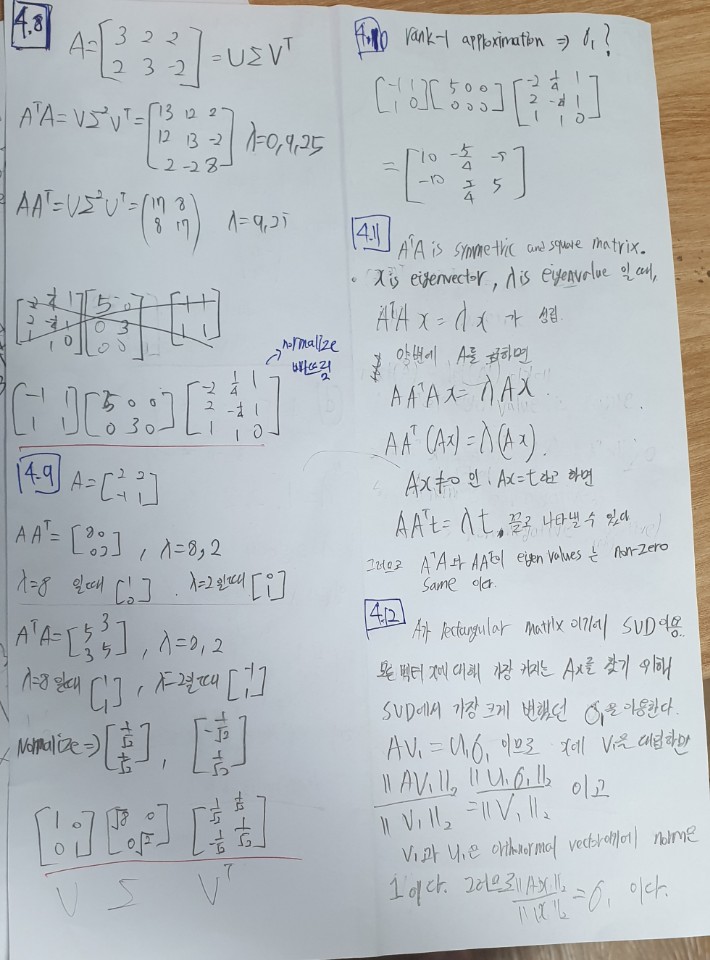 4.8
A = [3 2 2; 2 3 -2] = UΣV^T
A^TA = VΣ²V^T = [13 12 2; 12 13 -2; 2 -2 8] λ=0,9,25
AA^T = UΣ²U^T = (17 8; 8 17) λ=9,25
normalize
빠뜨림
[-1 1; 1 1] [5 0 0; 0 3 0] [-2 1/4 1; 2 -1/4 1; 1 1 0]
4.9 A = [2 2; -1 1]
AA^T = [8 0; 0 2], λ=8,2
λ=8 일때 [1; 0]. λ=2일때 [0; 1]
A^TA = [5 3; 3 5], λ=8,2
λ=8일때 [1; 1], λ=2일때 [-1; 1]
Normalize ⇒ [1/√2; 1/√2], [-1/√2; 1/√2]
[1 0; 0 1] [√8 0; 0 √2] [1/√2 1/√2; -1/√2 1/√2]
U Σ V^T
4.10 rank-1 approximation ⇒ σ₁?
[-1 1; 1 0] [5 0 0; 0 0 0] [-2 1/4 1; 2 -1/4 1; 1 1 0]
= [10 -5/4 -5; -10 5/4 5]
4.11 A^TA is symmetric and square matrix.
x is eigenvector, λ is eigenvalue 일 때,
A^TA x = λx 가 성립.
양변에 A를 곱하면
AA^TAx = λAx
AA^T(Ax) = λ(Ax).
Ax≠0 인, Ax=t라고 하면
AA^Tt = λt, 꼴로 나타낼 수 있다
그러므로 A^TA와 AA^T의 eigen values 는 non-zero
same 이다.
4.12 A가 rectangular matrix 이기에 SVD 이용.
모든 벡터 x에 대해 가장 커지는 Ax를 찾기 위해
SVD에서 가장 크게 변했던 σ₁을 이용한다.
AV₁ = U₁σ₁ 이므로 x에 V₁을 대입하면
||AV₁||₂ / ||V₁||₂ = ||U₁σ₁||₂ / ||V₁||₂ 이고
V₁과 U₁은 orthonormal vector이기에 norm은
1이다. 그러므로 ||Ax||₂ / ||x||₂ = σ₁ 이다.